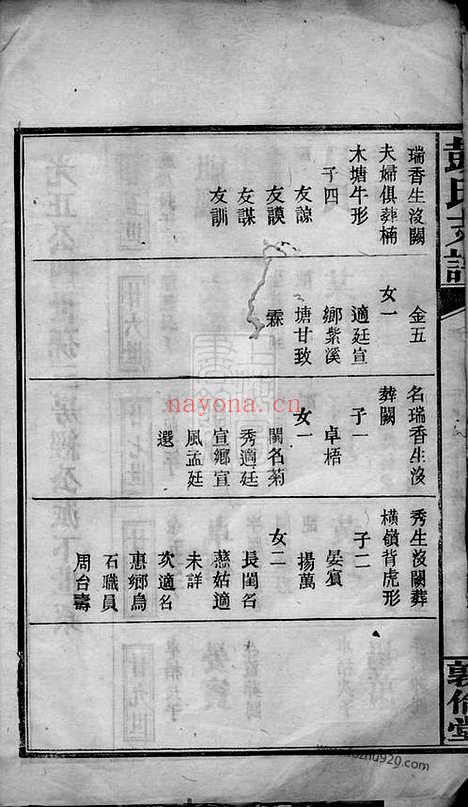 彭氏支譜
敦倫堂
瑞香生沒闕
夫婦俱葬楠
木塘牛形
子四
友諒
友謨
友謀
友訓
金五
女一
適廷宣
鄉紫溪
塘甘致
霖
名瑞香生沒
葬闕
子一
卓梧
女一
閨名菊
秀適廷
宣鄉宣
風孟廷
選
秀生沒闕葬
橫嶺背虎形
子二
晏賓
揚萬
女二
長閨名
慈姑適
未詳
次適名
惠鄉烏
石職員
周台壽
nayona.cn